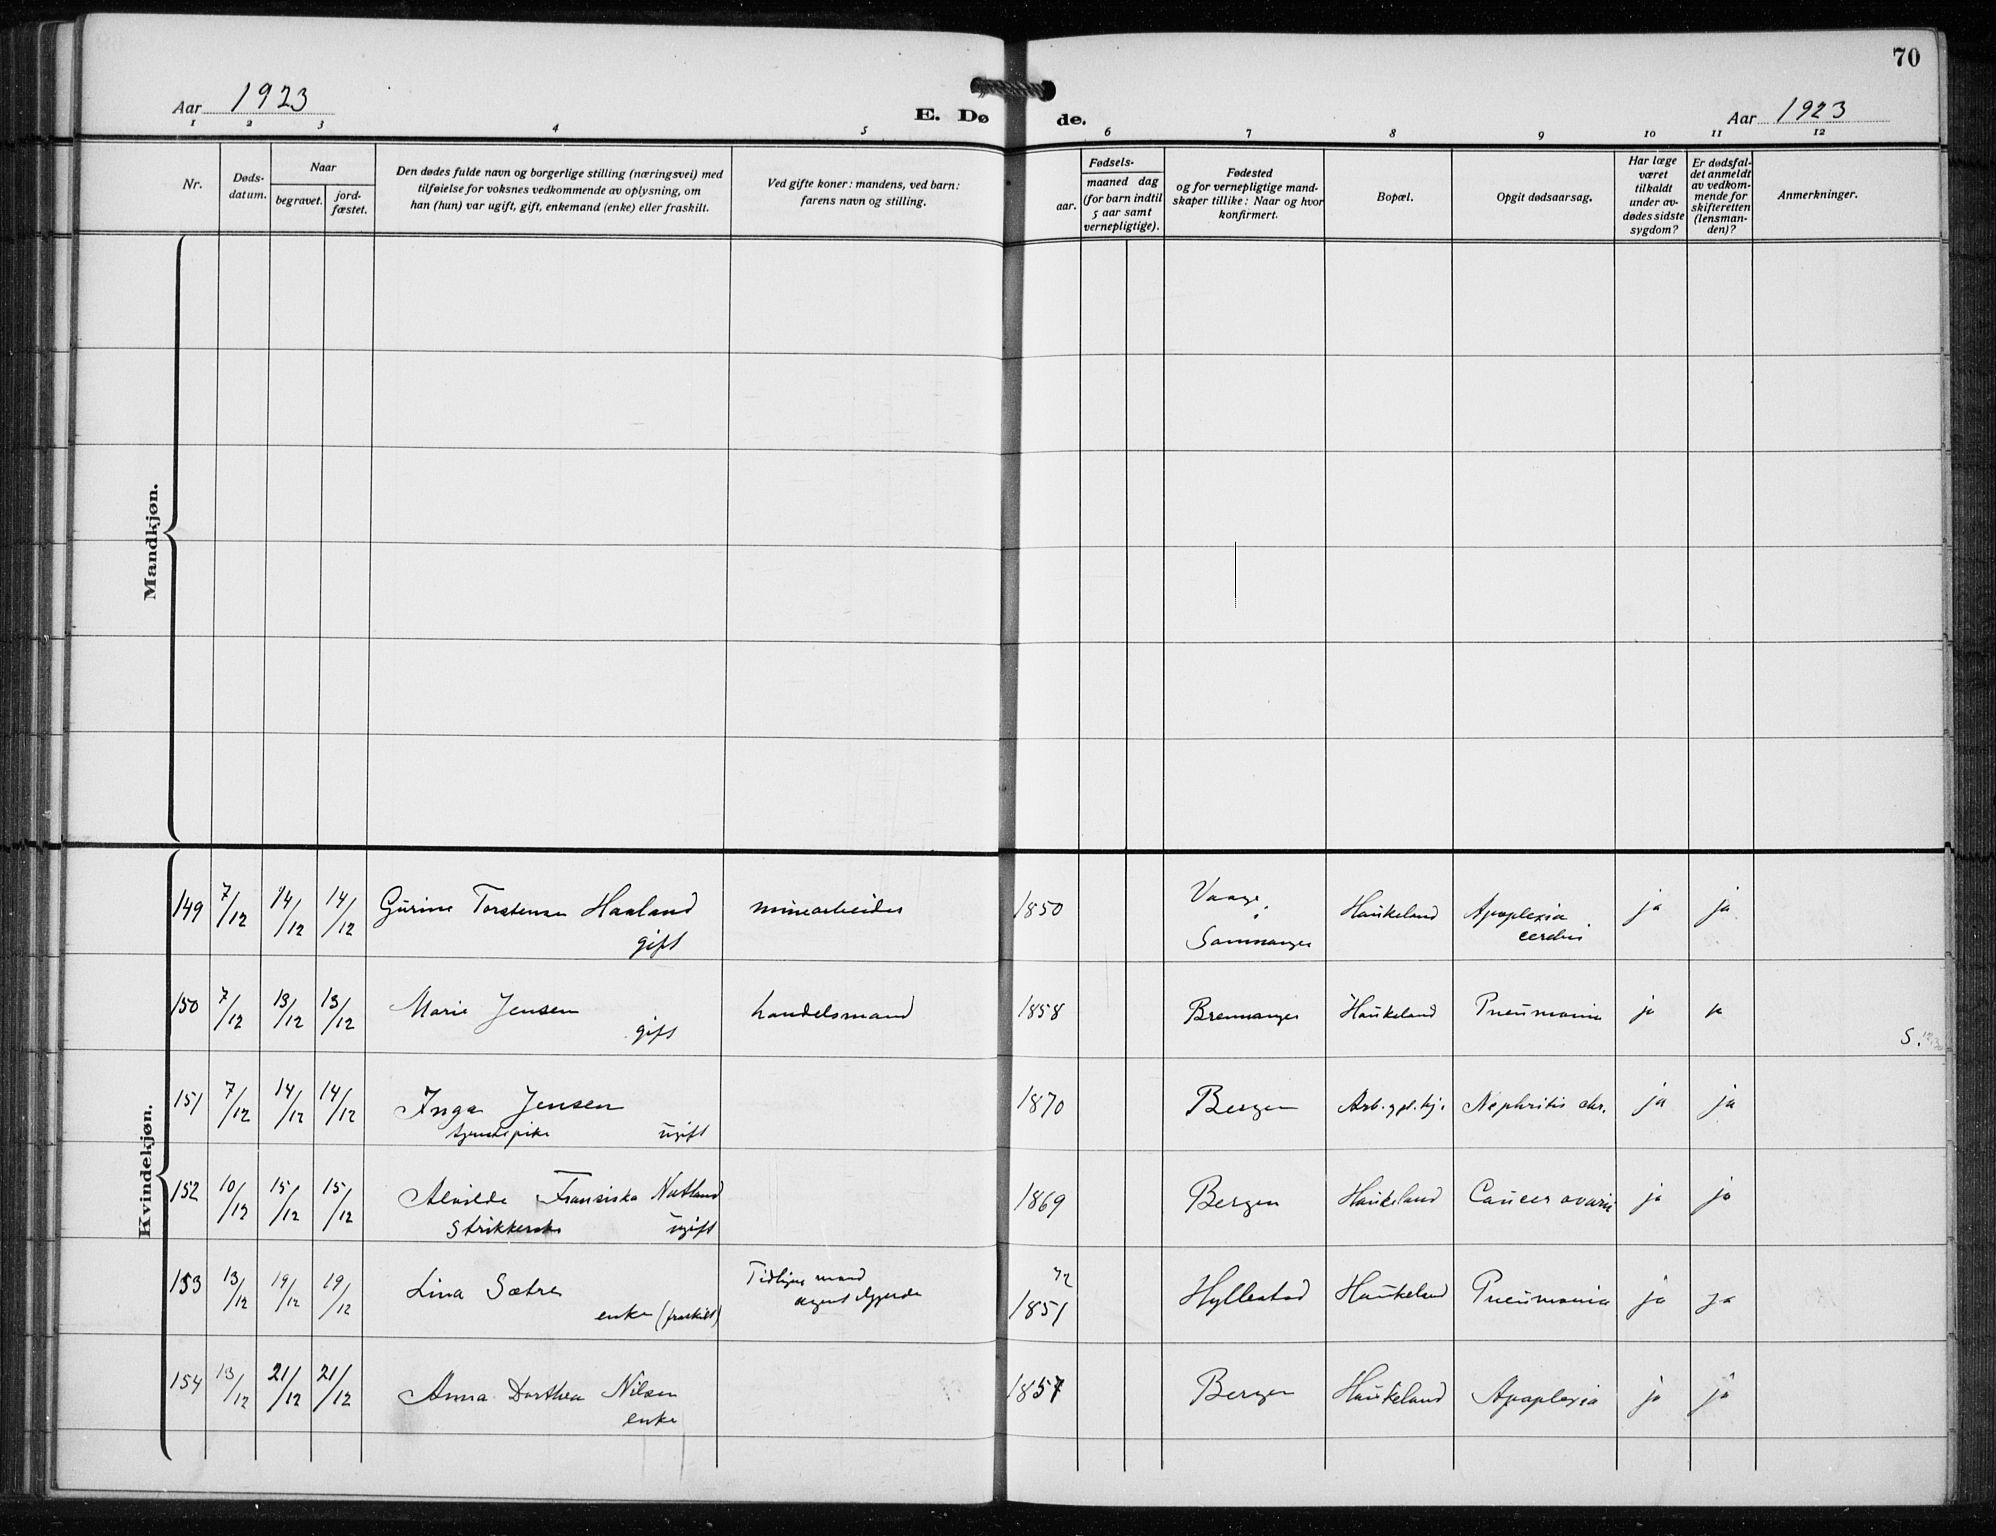 70
Aar 1923
E. Dø de.
Aar 1923
1 2 3 4 5 6 7 8 9 10 11 12
Nr.
Døds-
datum.
Naar
begravet.
jord-
fæstet.
Den dødes fulde navn og borgerlige stilling (næringsvei) med
tilføielse for voksnes vedkommende av oplysning, om
han (hun) var ugift, gift, enkemand (enke) eller fraskilt.
Ved gifte koner: mandens, ved barn:
farens navn og stilling.
Fødsels-
aar.
maaned dag
(for barn indtil
5 aar samt
vernepligtige).
Fødested
og for vernepligtige mand-
skaper tillike: Naar og hvor
konfirmert.
Bopæl.
Opgit dødsaarsag.
Har læge
været
tilkaldt
under av-
dødes sidste
sygdom?
Er dødsfal-
det anmeldt
av vedkom-
mende for
skifteretten
(lensman-
den)?
Anmerkninger.
Mandkjøn.
Kvindekjøn.
149 7/12 14/12 14/12 Gurine Torstensen Haaland minearbeider 1850 Vaage, Haukeland Apoplexia ja ja
gift Samnanger
150 7/12 13/12 13/12 Marie Jensen handelsmand 1858 Bremanger Haukeland Pneumonia ja ja
gift S.
151 7/12 14/12 14/12 Inga Jensen 1870 Bergen Nephritis chr. ja ja
tjenestepike ugift
152 10/12 15/12 15/12 Alvilde Fransiska Natland 1869 Bergen Haukeland Cancer ovarii ja ja
Strikkerske ugift
153 13/12 19/12 19/12 Lina Sætre Tidligere mand 1851 Hyllestad Haukeland Pneumonia ja ja
enke (fraskilt) agent
154 13/12 21/12 21/12 Anna Dorthea Nilsen 1857 Bergen Haukeland Apoplexia ja ja
enke